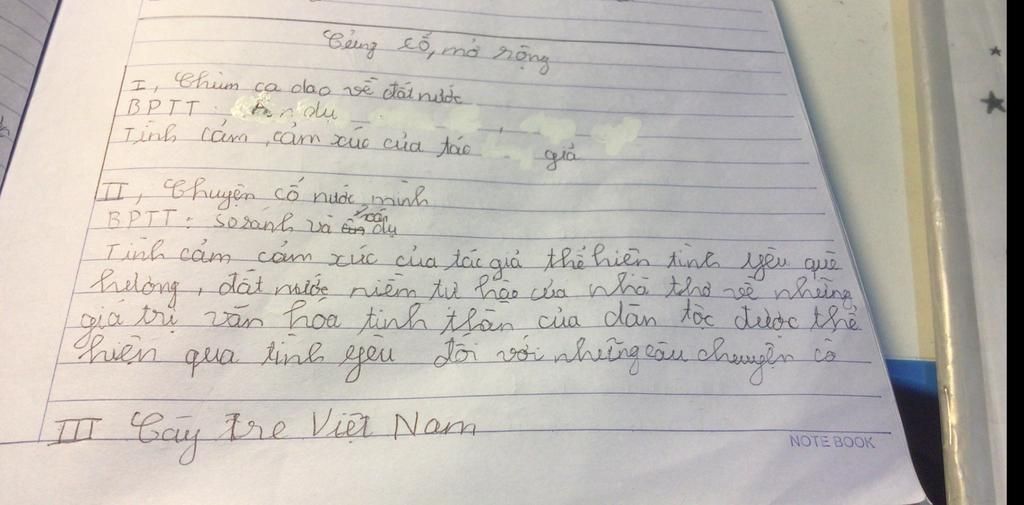 Củng cố, mở rộng
I, Chùm ca dao về đất nước
BPTT: Ẩn dụ
Tình cảm, cảm xúc của tác giả
II, Chuyện cổ nước mình
BPTT: so sanh và ẩn dụ
Tình cảm cảm xúc của tác giả thể hiện tình yêu quê
hương, đất nước niềm tự hào của nhà thơ về những
giá trị văn hóa tinh thần của dân tộc được thể
hiện qua tình yêu đối với những câu chuyện cổ
III Cây tre Việt Nam
NOTE BOOK